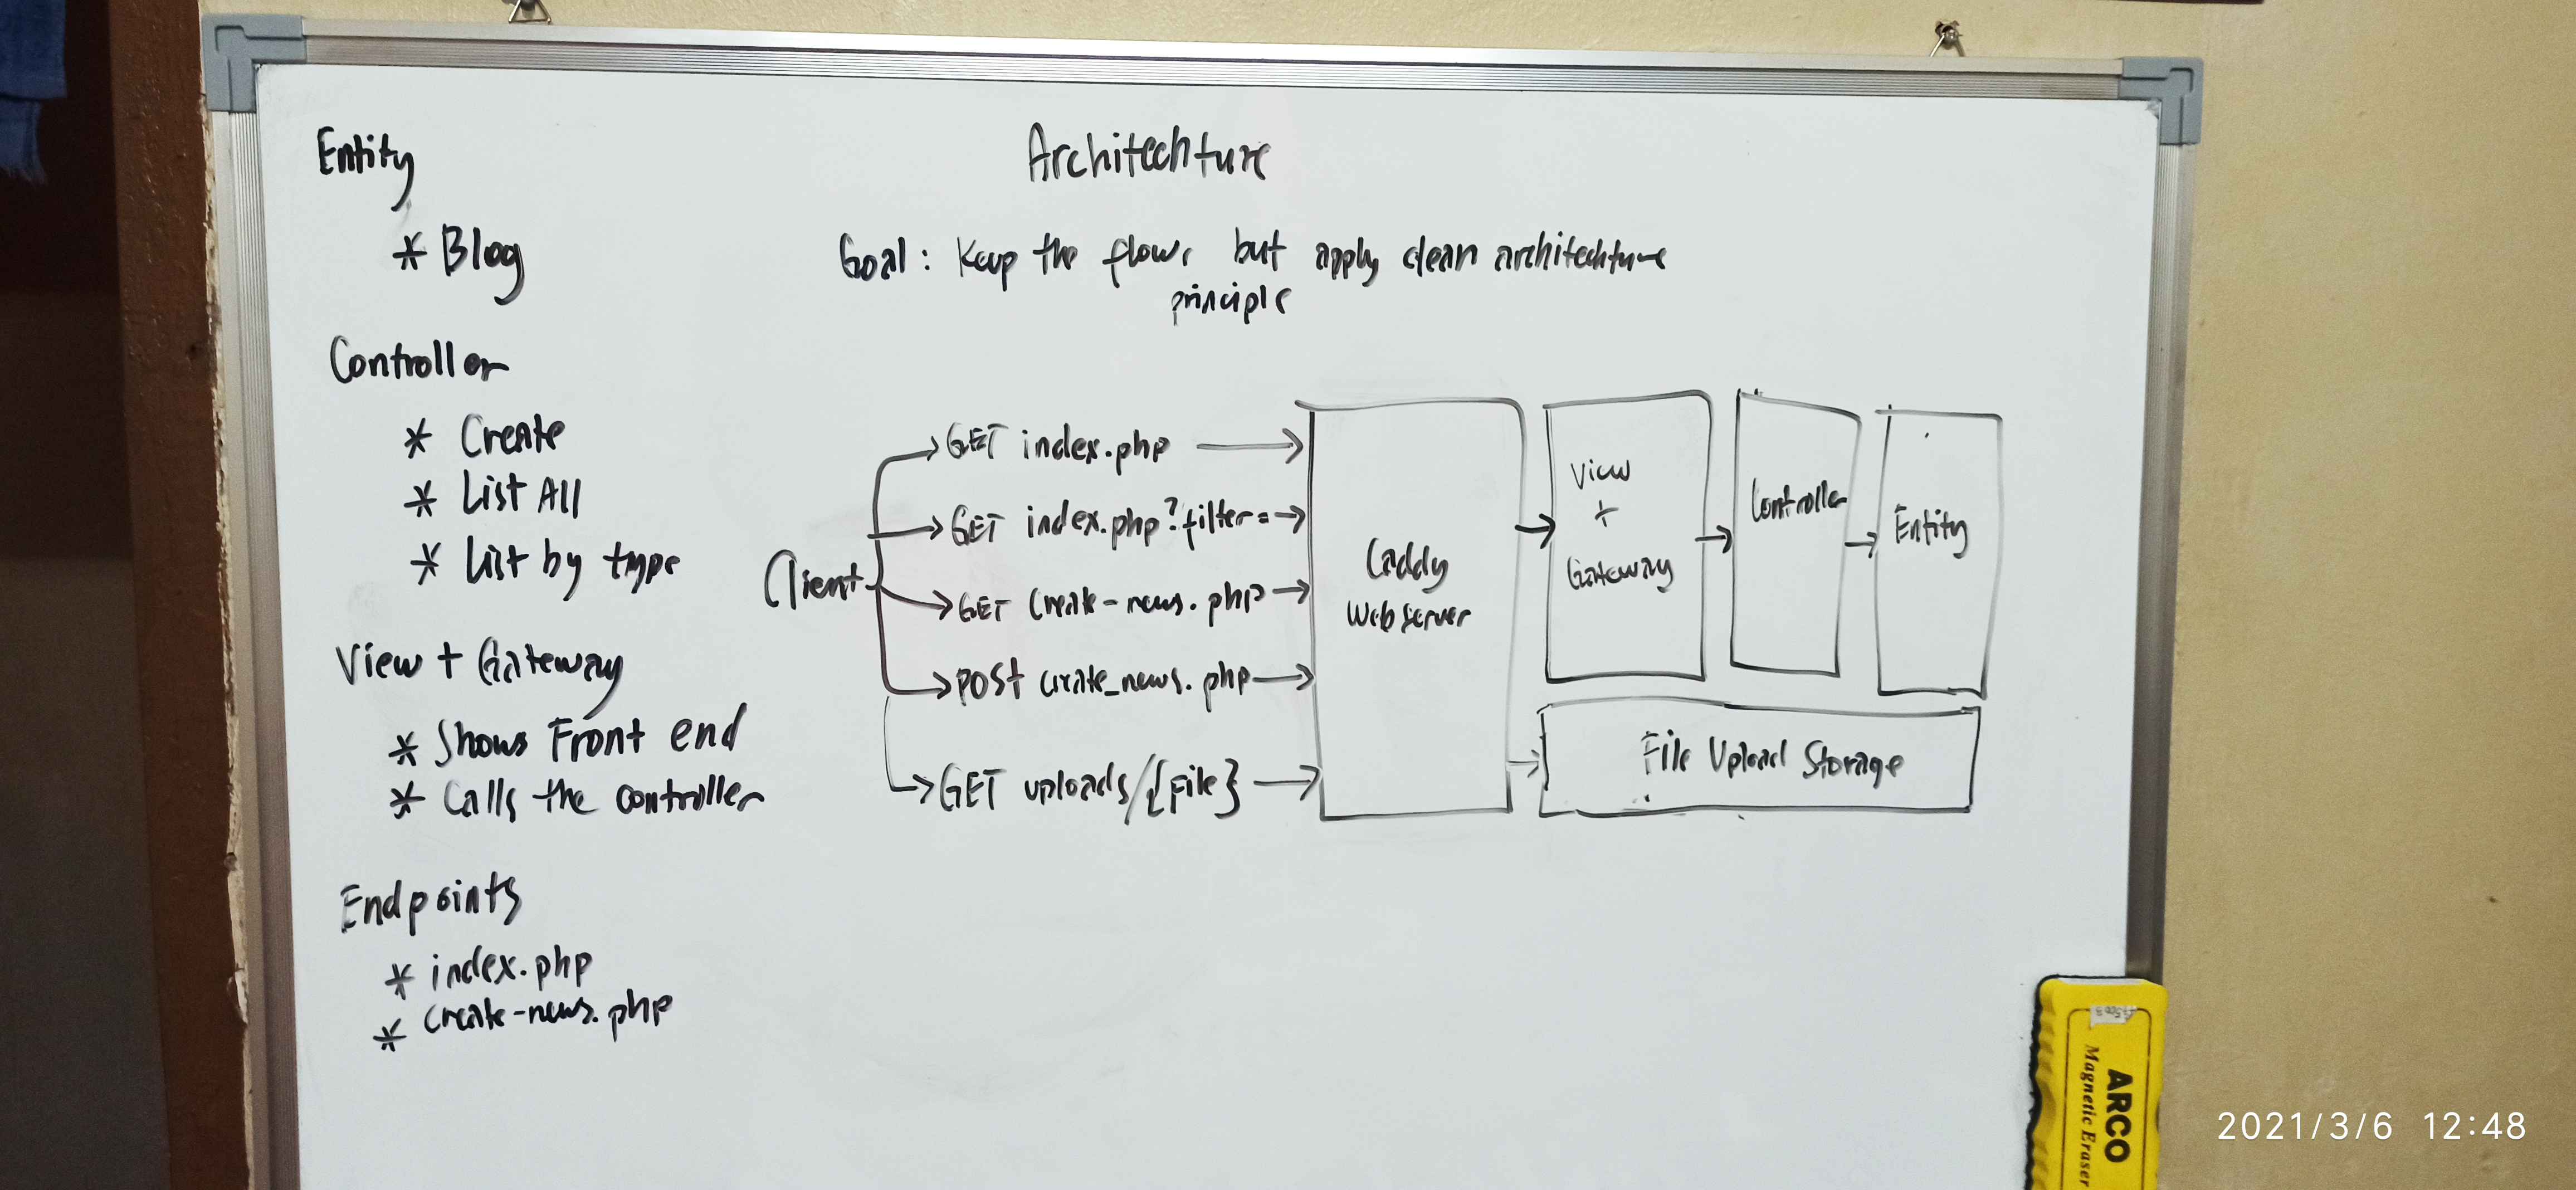 Entity
* Blog
Controller
* Create
* List All
* List by type
View + Gateway
* Shows Front end
* Calls the controller
Endpoints
* index.php
* create-news.php
Architechture
Goal: Keep the flow, but apply clean architechture
principle
Client
GET index.php
GET index.php?filter=
GET create-news.php
POST create_news.php
GET uploads/{file}
Caddy
Web Server
View
+
Gateway
Controller
Entity
File Upload Storage
ARCO
Magnetic Eraser
2021/3/6 12:48